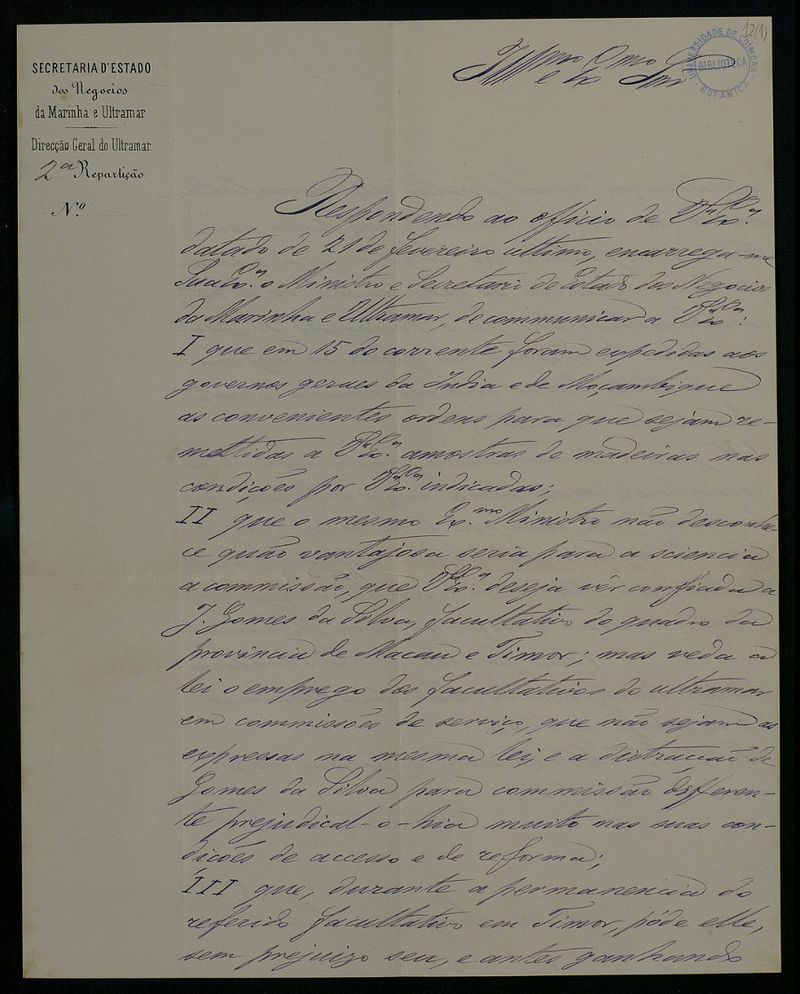 12(1)
UNIVERSIDADE DE COIMBRA
BIBLIOTECA
BOTANICA
SECRETARIA D'ESTADO
dos Negocios
da Marinha e Ultramar
Direcção Geral do Ultramar
2ª Repartição
N.º
Ill.mo e Ex.mo Snr
Respondendo ao officio de V.ª Ex.ª
datado de 21 de fevereiro ultimo, encarrega-me
Sua Ex.ª o Ministro e Secretario de Estado dos Negocios
da Marinha e Ultramar, de communicar a V.ª Ex.ª:
I que em 15 do corrente foram expedidas aos
governos geraes da India e de Moçambique
as convenientes ordens para que sejam re-
mettidas a V.ª Ex.ª amostras de madeiras nas
condições por V.ª Ex.ª indicadas;
II que o mesmo Ex.mo Ministro não desconhe-
ce quão vantajosa seria para a sciencia
a commissão, que V.ª Ex.ª deseja vêr confiada a
J. Gomes da Silva, facultativo do quadro da
provincia de Macau e Timor; mas veda a
lei o emprego dos facultativos do ultramar
em commissões de serviço, que não sejam as
expressas na mesma lei, e a distracção de
Gomes da Silva para commissão differen-
te prejudical-o-hia muito nas suas con-
dições de accesso e de reforma;
III que, durante a permanencia do
referido facultativo em Timor, póde elle,
sem prejuizo seu, e antes ganhando